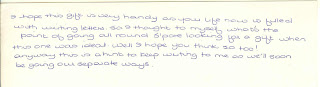 I hope this gift is very handy as your life now is filled
with writing letters. So I thought to myself what's the
point of going all round S'pore looking for a gift when
this one was ideal. Well I hope you think so too!
anyway this is a hint to keep writing to me as we'll soon
be going our separate ways.